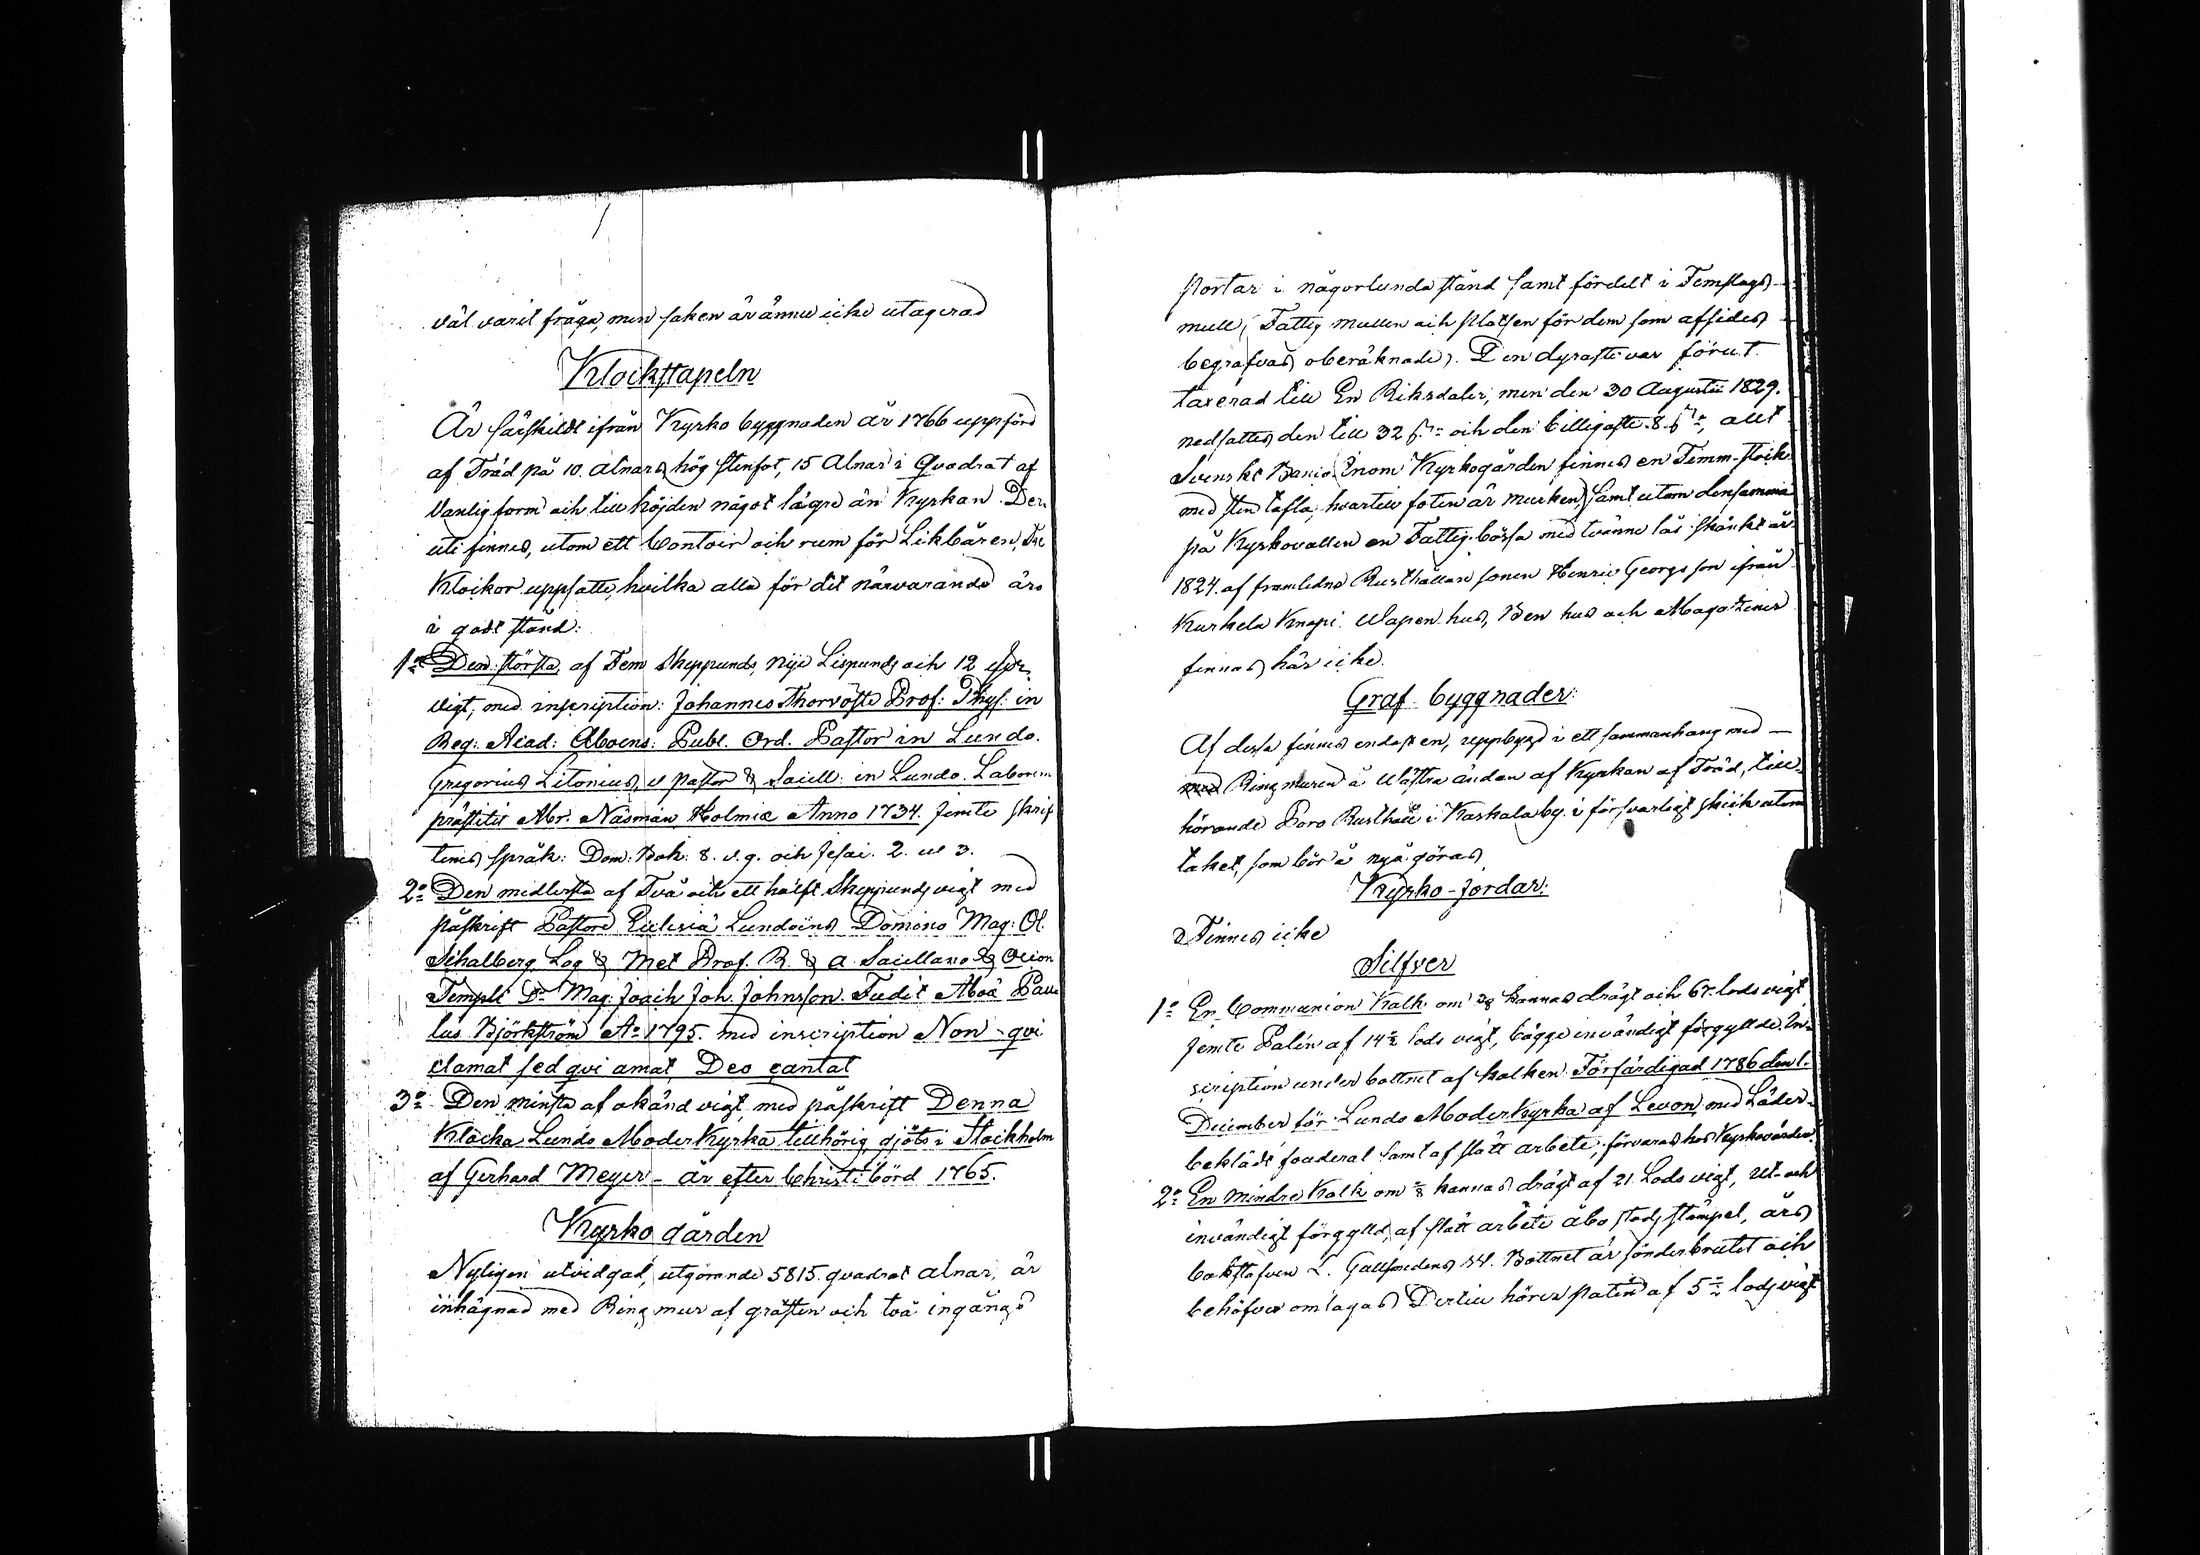 väl varit fråga, men saken är ännu icke utagerad
Klockstapeln
Är särskildt ifrån Kyrko byggnaden år 1766 uppförd
af Träd på 10. alnars hög stenfot, 15 Alnar i Quadrat af
Vanlig form och till höjden något lägre än Kyrkan. Der
uti finnes, utom ett Contoir och rum för Likbåren, Tre
Klockor uppsatte, hvilka alla för det närvarande äro
i godt stånd:
1:o Den största af Fem Skeppunds, nije Lispunds och 12
vigt, med inscription: Johannes Thorvöste Prof: Phys: in
Reg: Acad: Aboens: Publ. Ord. Pastor in Lundo.
Gregorius Litonius, V pastor & Sacell: in Lundo. Laborem
prästitit Mr. Näsman Holmiæ Anno 1734. jemte skrif
tenes språk: Dom. Bok: 8. v. 9. och Jesai. 2. v 3.
2:o Den medlersta af Två och ett halft Skeppunds vigt med
påskrift Pastore Ecclesiä Lundoëns Domino Mag: Ol.
Schalberg Log & Met Prof. R. & A. Sacellano &
Templi D:o Mag: Joach Joh. Johnsson. Fudit Åboä Pau
lus Björkström A:o 1795. med inscription Non - qvi
clamat sed qvi amat, Deo cantat
3:o Den minsta af okänd vigt med påskrift Denna
Klåcka Lundo Moder Kyrka tillhörig gjöts i Stockholm
af Gerhard Meyer - år efter Christi börd 1765.
Kyrko gården
Nyligen utvidgad, utgörande 5815. quadrat alnar, är
inhägnad med Ring mur af gråsten och två ingångs
portar i någorlunda stånd samt fördelt i Femslags
mull, Fattig mullen och platsen för dem som afsides
begrafvas oberäknade). Den dyraste var förut
taxerad till En Riksdaler, men den 30 Augustii 1829.
nedsattes den till 32 s. och den billigaste 8 s. allt
Svenskt Banco. Inom Kyrkogården finnes en Femm-stock
med sten tafla, hvartill foten är murken, samt utom densamma
på Kyrkovallen en Fattig-bössa med tvänne lås skänkt år
1824. af framledne Rusthållare sonen Henric Georgsson ifrån
Kurkela Knapi. Wapen hus, Ben hus och Magaziner
finnas här icke.
Graf byggnader:
Af dessa finnes endast en, uppbygd i ett sammanhang med —
med Ringmuren å Wästra ändan af Kyrkan af Träd, till-
hörande Poro Rusthåll i Kaskala by. i försvarligt skick utom
taket, som bör å nyå göras
Kyrko-jordar:
Finnes icke
Silfver
1:o En Communion Kalk om kannas drägt och 67. lods vigt
jemte Paten af 14 lods vigt, bägge invändigt förgyllde. In-
scription under bottnet af kalken. Förfärdigad 1786 den 1.
December för Lundo Moder Kyrka af Levon, med Läder-
beklädt foaderal samt af slätt arbete, förvaras hos Kyrkovärden.
2:o En mindre Kalk om kannas drägt af 21. Lods vigt, ut- och
invändigt förgylld, af slätt arbete åbo stads stämpel, års
bokstafven L. Bottnet är sönderbrutet och
behöfver omlagas Dertill hörer paten af 5 lods vigt